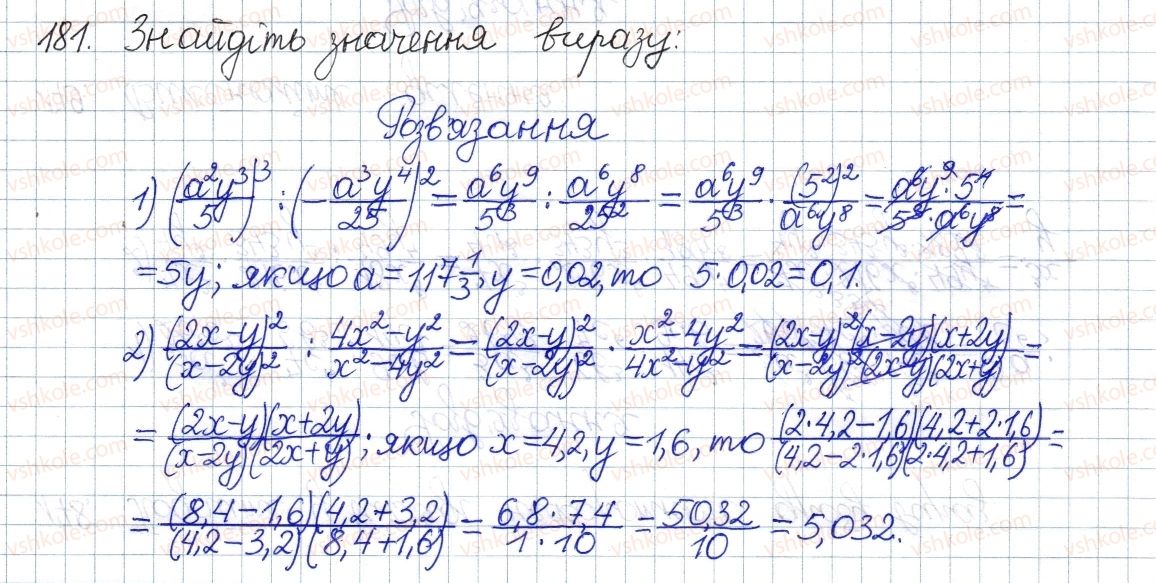 181. Знайдіть значення виразу:
Розв'язання
1) (a²y³/5)³ : (-a³y⁴/25)² = a⁶y⁹/5³ : a⁶y⁸/25² = a⁶y⁹/5³ · (5²)²/a⁶y⁸ = a⁶y⁹·5⁴/5³·a⁶y⁸ =
= 5y; якщо a = 117 1/3, y = 0,02, то 5·0,02 = 0,1.
2) (2x-y)²/(x-2y)² : 4x²-y²/x²-4y² = (2x-y)²/(x-2y)² · x²-4y²/4x²-y² = (2x-y)²(x-2y)(x+2y)/(x-2y)²(2x-y)(2x+y) =
= (2x-y)(x+2y)/(x-2y)(2x+y); якщо x = 4,2, y = 1,6, то (2·4,2-1,6)(4,2+2·1,6)/(4,2-2·1,6)(2·4,2+1,6) =
= (8,4-1,6)(4,2+3,2)/(4,2-3,2)(8,4+1,6) = 6,8·7,4/1·10 = 50,32/10 = 5,032.